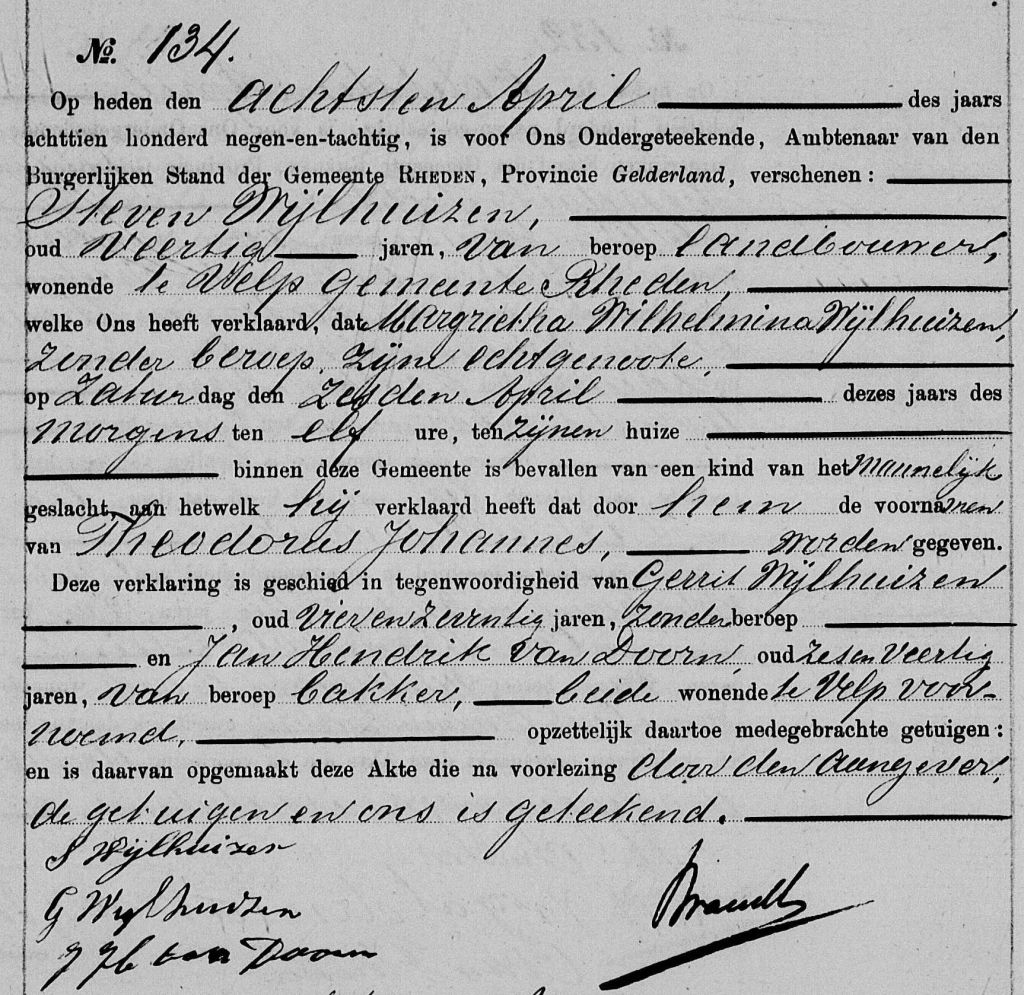 No. 134.
Op heden den achtsten April des jaars
achttien honderd negen-en-tachtig, is voor Ons Ondergeteekende, Ambtenaar van den
Burgerlijken Stand der Gemeente RHEDEN, Provincie Gelderland, verschenen:
Steven Wijlhuizen,
oud Veertig jaren, van beroep landbouwer,
wonende te Velp gemeente Rheden,
welke Ons heeft verklaard, dat Margrietha Wilhelmina Wijlhuizen,
zonder beroep, zijne echtgenoote,
op Zaturdag den zesden April dezes jaars des
morgens ten elf ure, ten zijnen huize
binnen deze Gemeente is bevallen van een kind van het mannelijk
geslacht, aan hetwelk hij verklaard heeft dat door hem de voornamen
van Theodorus Johannes, worden gegeven.
Deze verklaring is geschied in tegenwoordigheid van Gerrit Wijlhuizen
, oud vierenzeventig jaren, zonder beroep
en Jan Hendrik van Doorn, oud zesenveertig
jaren, van beroep bakker, beide wonende te Velp voor-
noemd, opzettelijk daartoe medegebrachte getuigen:
en is daarvan opgemaakt deze Akte die na voorlezing door den aangever,
de getuigen en ons is geteekend.
S Wijlhuizen
G Wijlhuizen
J H van Doorn
Brandt